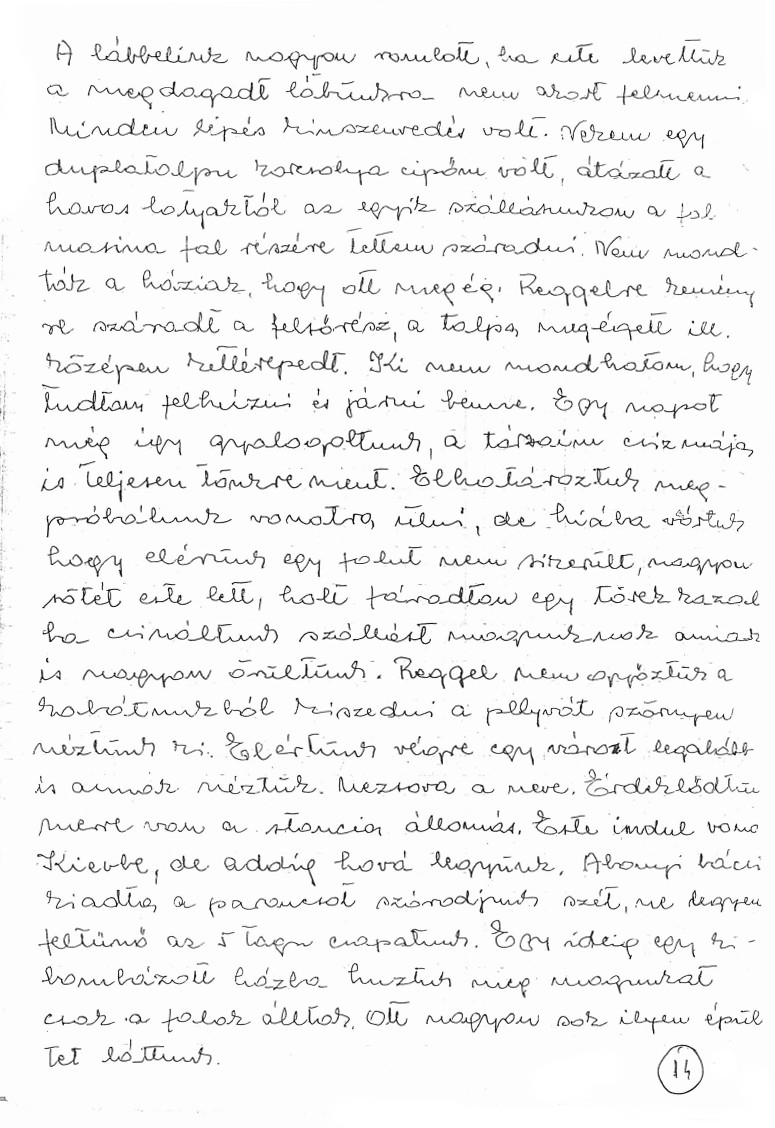 A lábbelink nagyon romlott, ha este levettük
a megdagadt lábunkra nem akart felmenni.
Minden lépés kínszenvedés volt. Nekem egy
duplatalpu korcsolya cipőm volt, átázott a
havas latyaktól az egyik szállásunkon a fal
masina fal részére tettem száradni. Nem mond-
ták a háziak, hogy ott megég. Reggelre kemény
re száradt a felsőrész, a talpa megégett ill.
középen kettérepedt. Ki nem mondhatom, hogy
tudtam felhúzni és járni benne. Egy napot
még így gyalogoltunk, a társaim csizmája
is teljesen tönkre ment. Elhatároztuk meg-
próbálunk vonatra ülni, de hiába vártuk
hogy elérünk egy falut nem sikerült, nagyon
sötét este lett, holt fáradtan egy törek kazal
ba csináltunk szállást magunknak annak
is nagyon örültünk. Reggel nem győztük a
kabátunkból kiszedni a pelyvát szörnyen
néztünk ki. Elértünk végre egy várost legalább
is annak néztük. Mezsova a neve. Érdeklődtün
merre van a stancia állomás. Este indul vona
Kievbe, de addig hová legyünk. Abonyi bácsi
kiadta a parancsot szóródjunk szét, ne legyen
feltünő az 5 tagu csapatunk. Egy ideig egy ki-
bombázott házba huztuk meg magunkat
csak a falak álltak. Ott nagyon sok ilyen épül
tet láttunk.
14